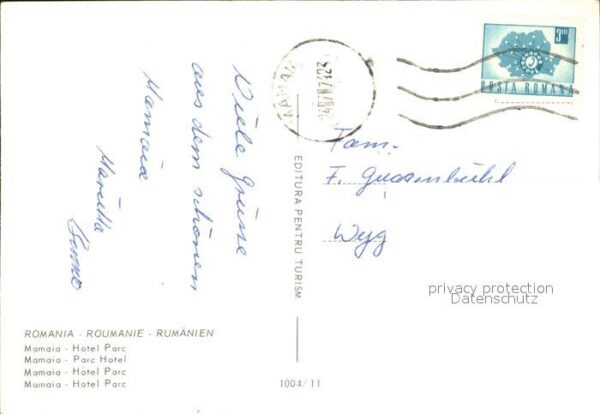 Viele Grüsse
aus dem schönen
Mamaia
Marietta
3 LEI
POSTA ROMANA
MAMAIA
Fam.
F. Guggenbühl
Wyg
EDITURA PENTRU TURISM
privacy protection
Datenschutz
ROMANIA - ROUMANIE - RUMÄNIEN
Mamaia - Hotel Parc
Mamaia - Parc Hotel
Mamaia - Hotel Parc
Mamaia - Hotel Parc
1004/11